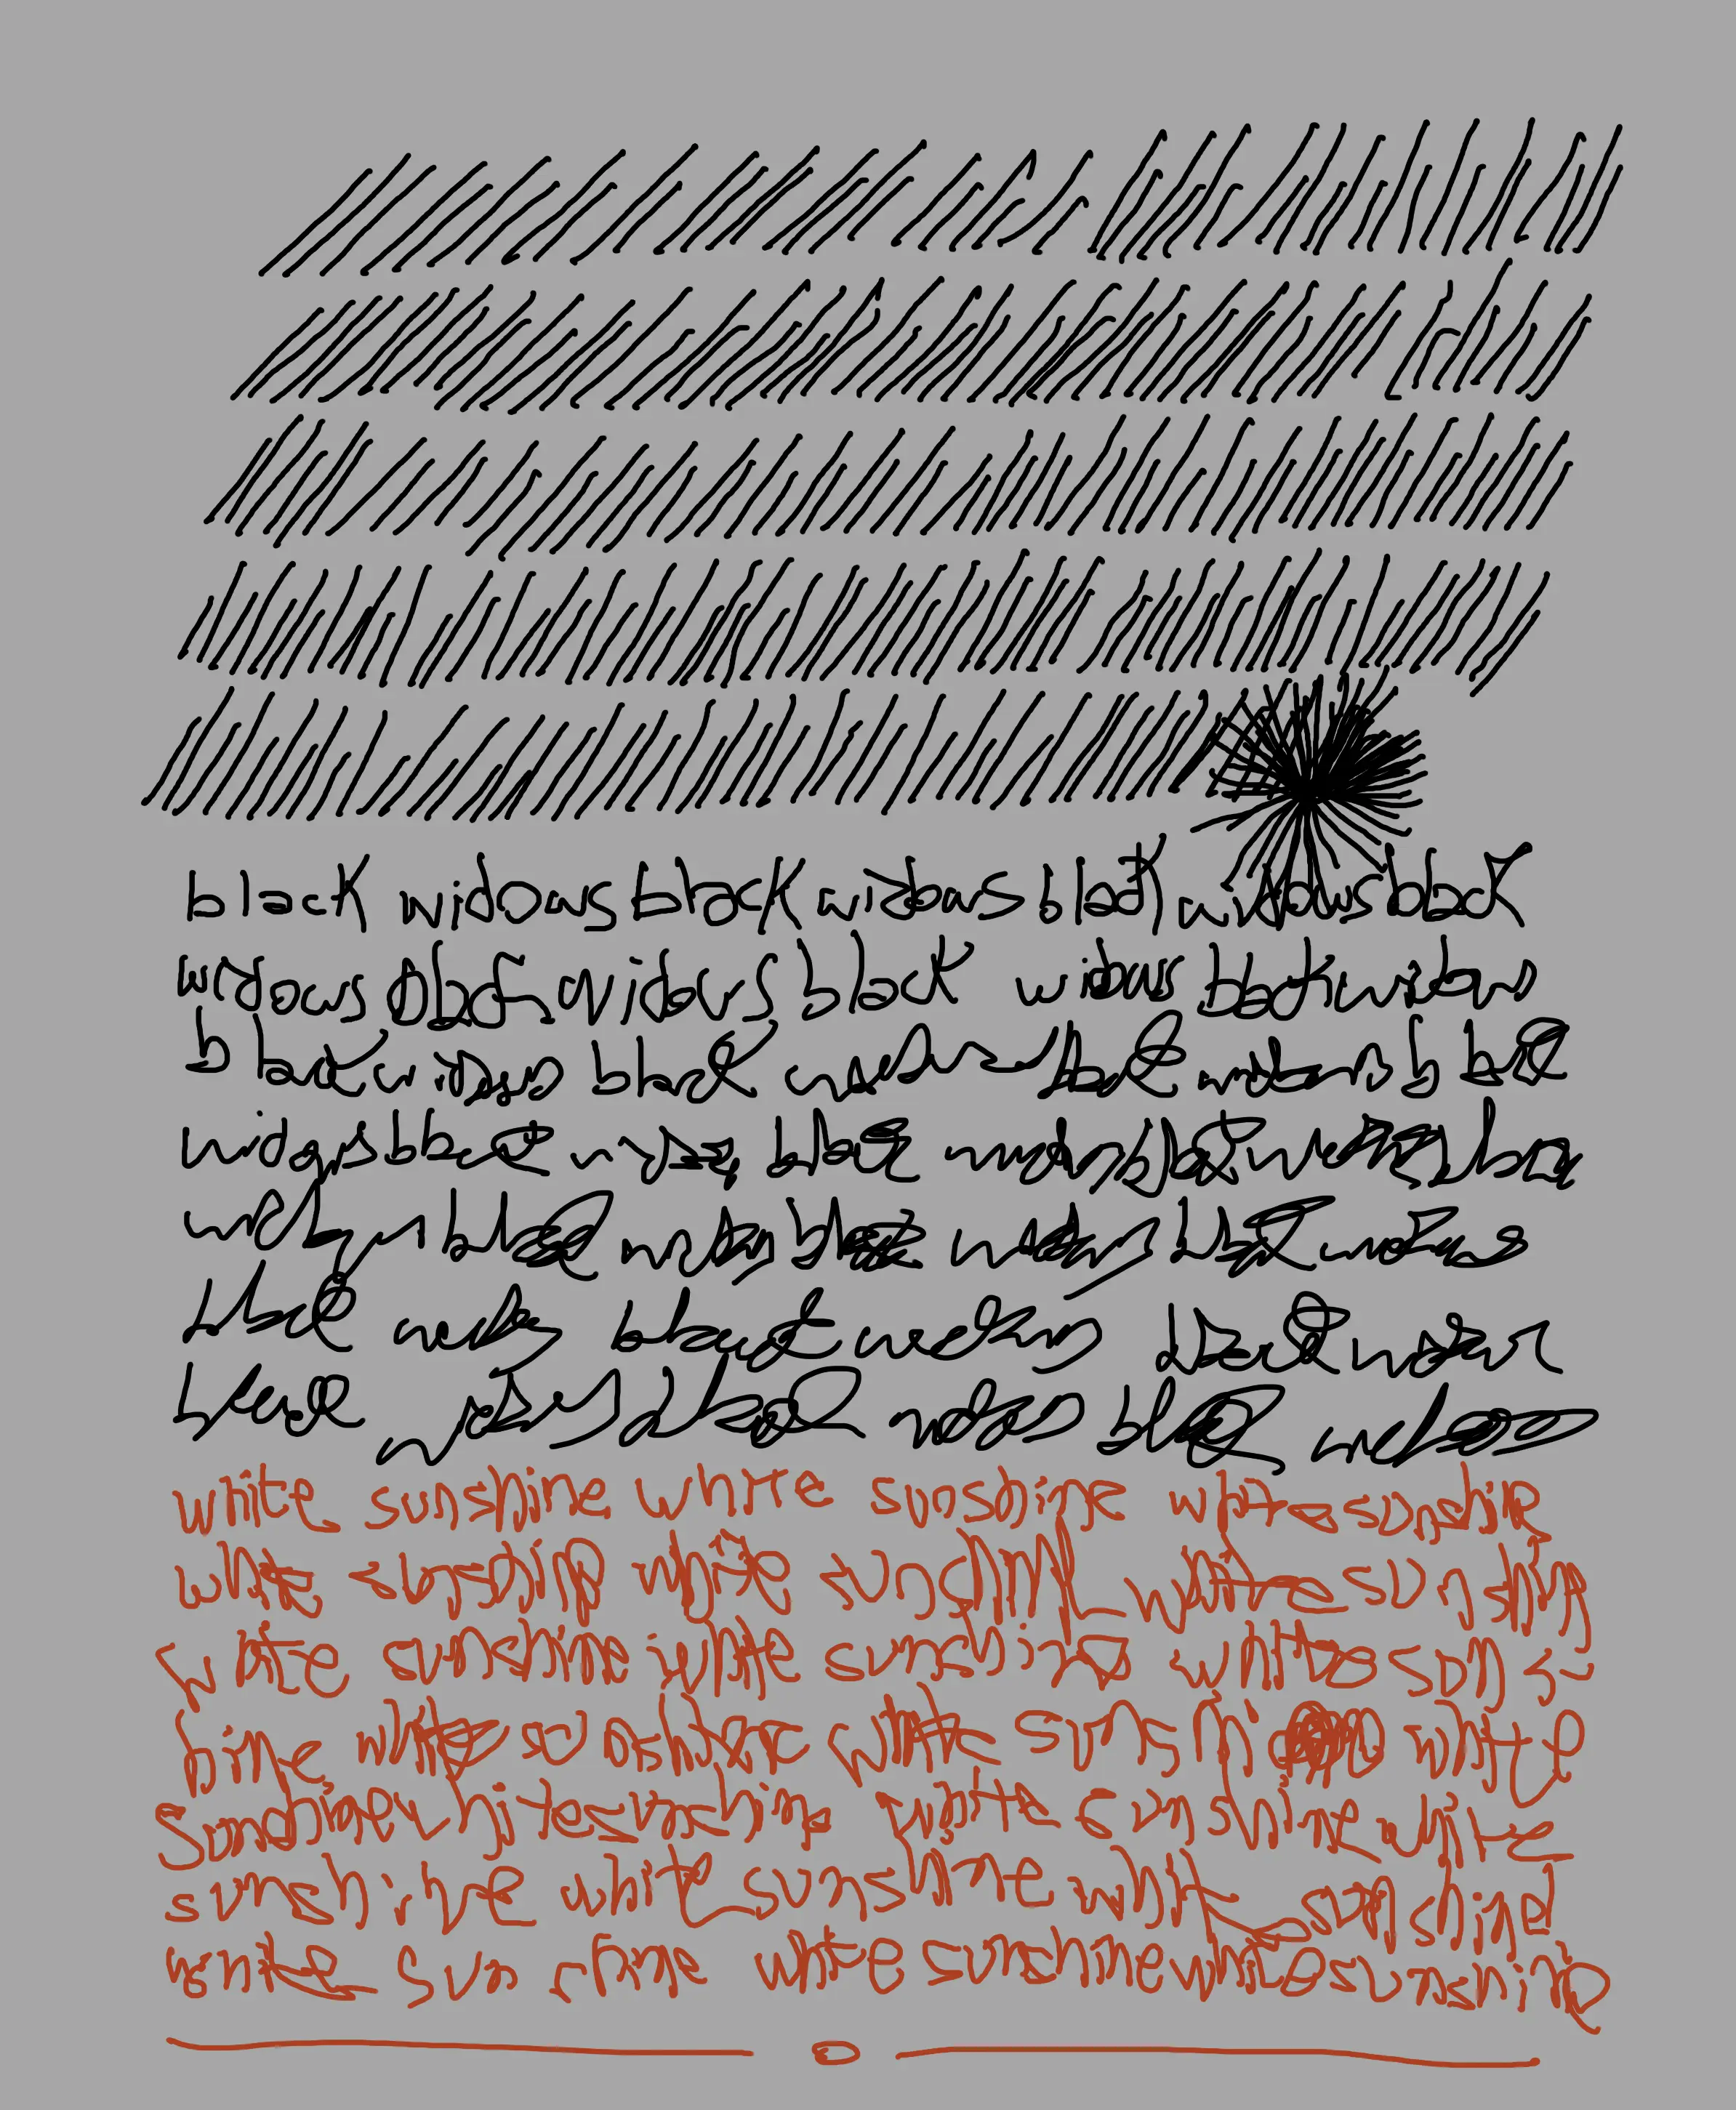 black widows black widows black widows black
widows black widows black widows black widows
black widows black widows black widows b black
widows black widows black widows black widows black
widows black widows black widows black widows
black widows black widows black widows
black widows black widows black widows
white sunshine white sunshine white sunshine
white sunshine white sunshine white sunshine
white sunshine white sunshine white suns
hine white sunshine white sunshine white
sunshine white sunshine white sunshine white
sunshine white sunshine white sunshine
white sunshine white sunshine white sunshine